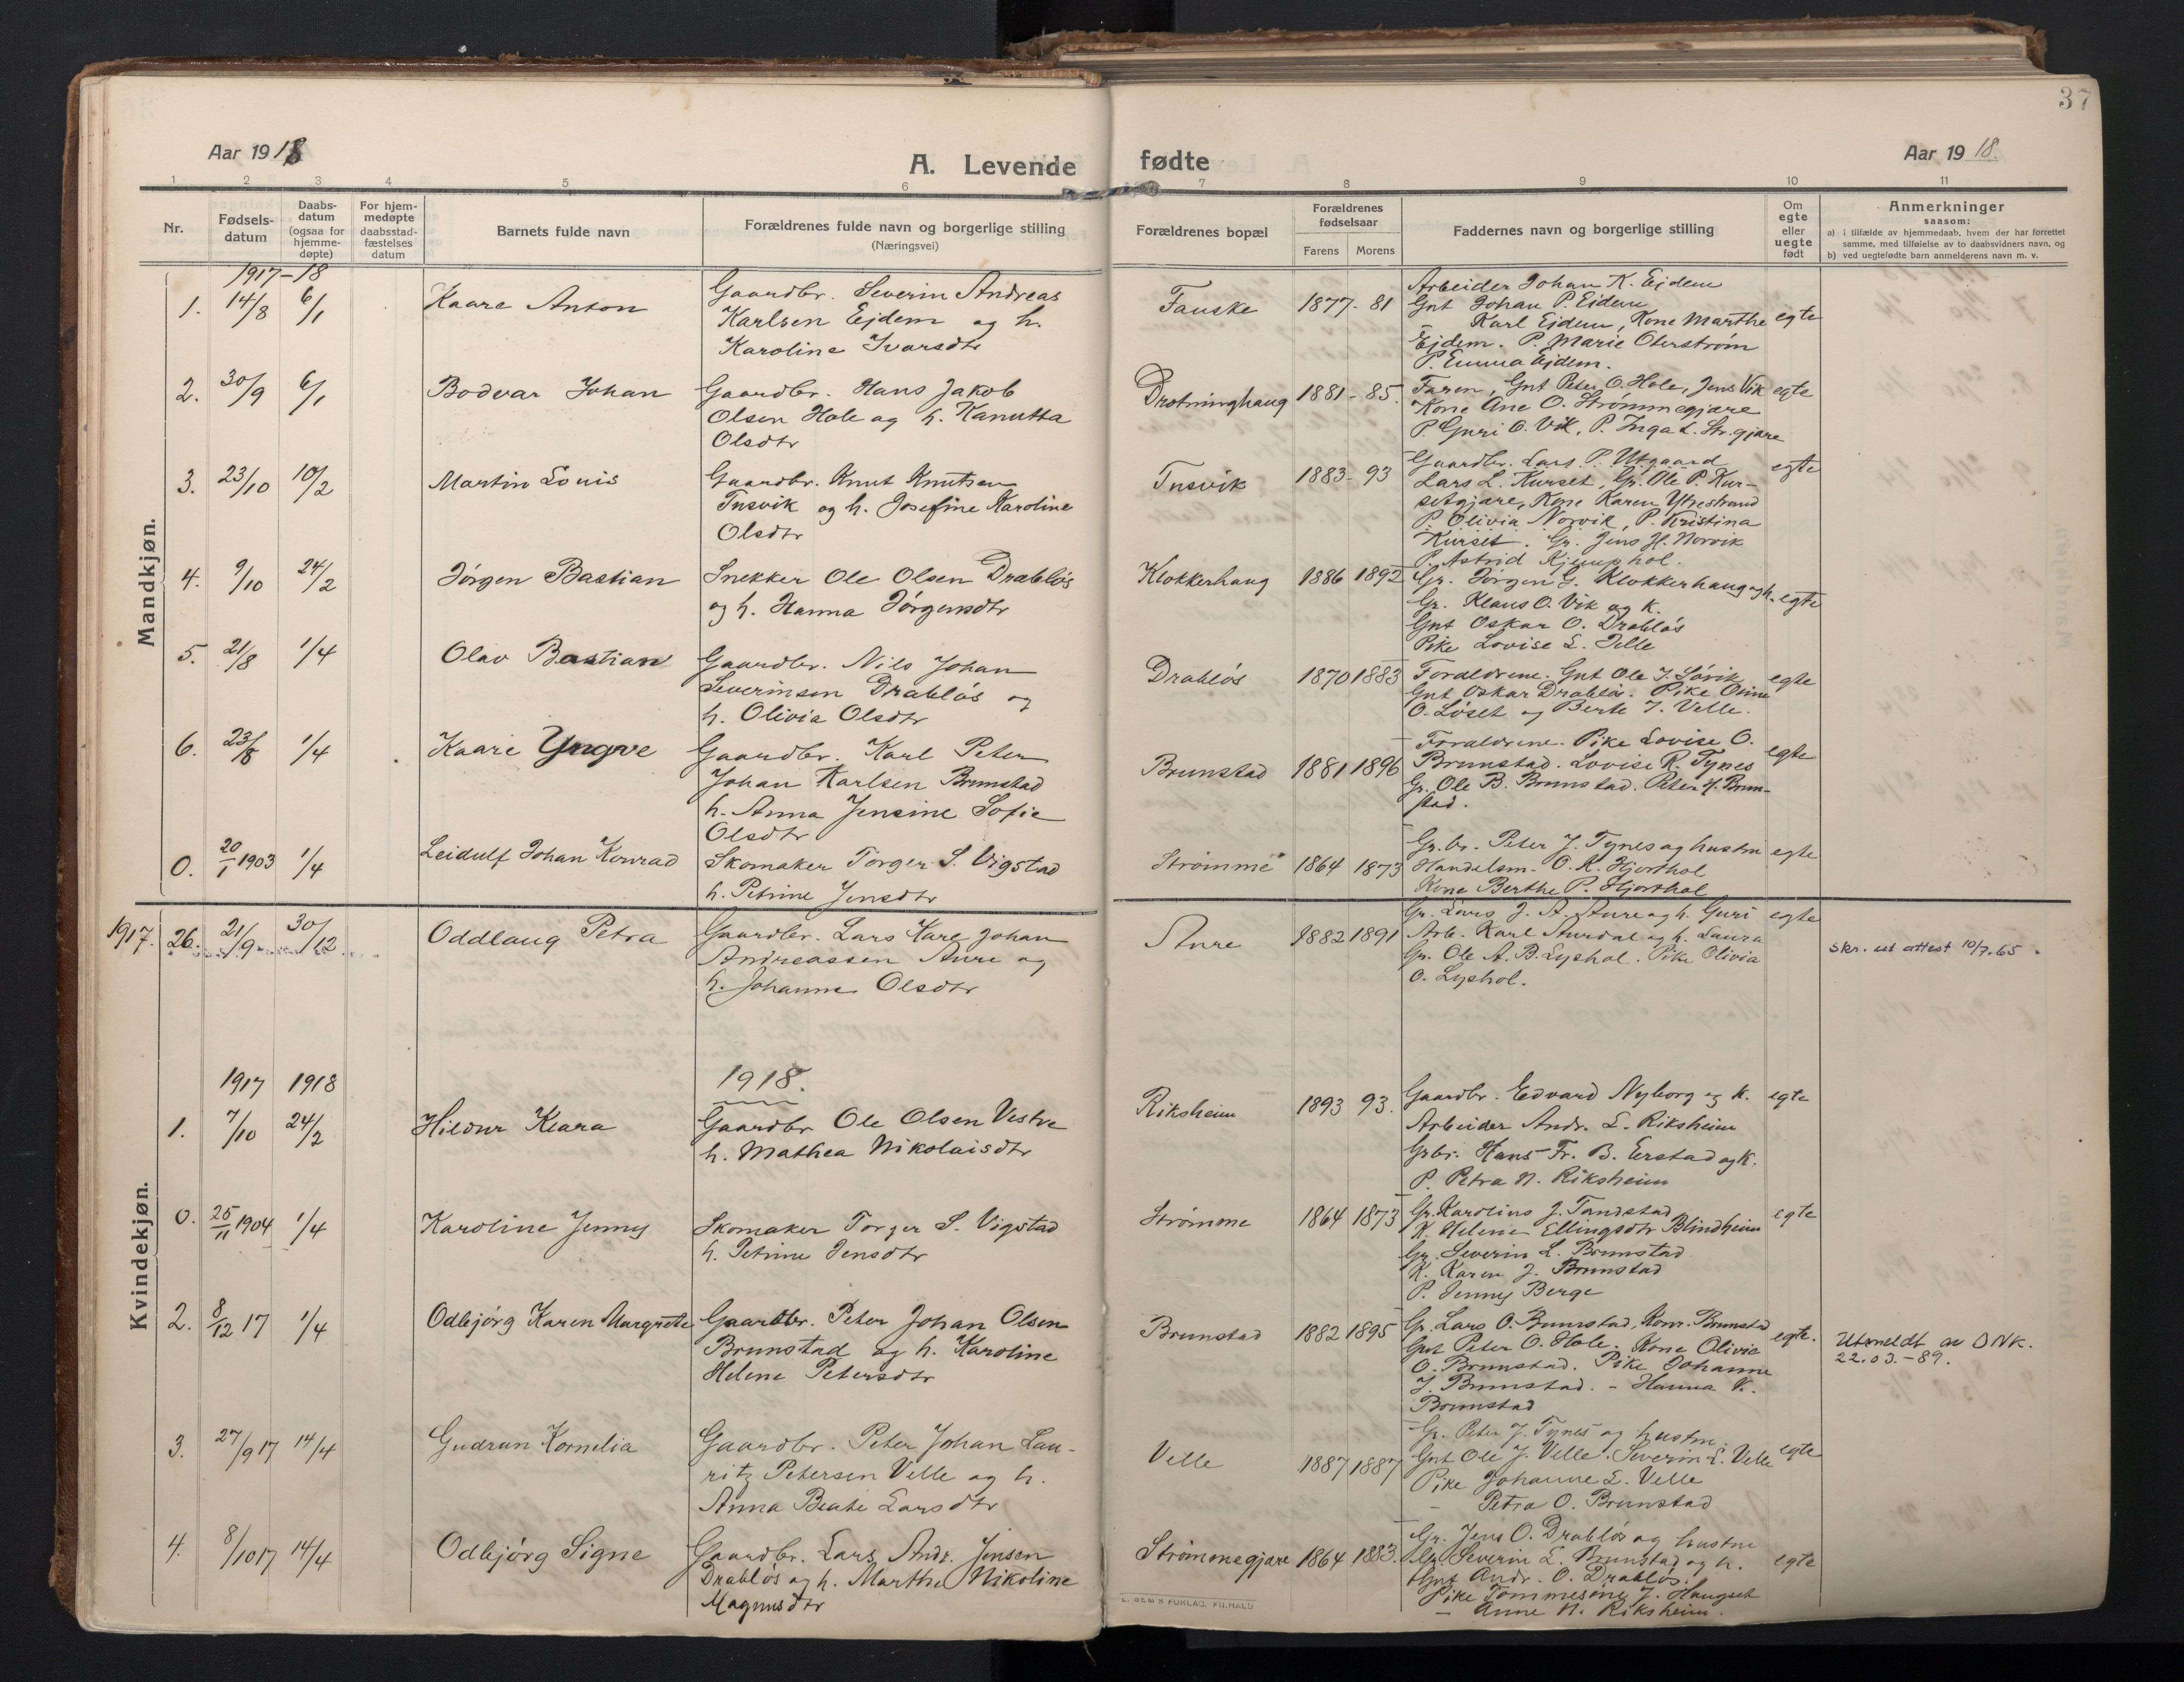 37
Aar 1918
A. Levende fødte
Aar 1918.
1 2 3 4 5 6 7 8 9 10 11
Nr.
Fødsels-
datum
Daabs-
datum
(ogsaa for
hjemme-
døpte)
For hjem-
medøpte
daabsstad-
fæstelses
datum
Barnets fulde navn
Forældrenes fulde navn og borgerlige stilling
(Næringsvei)
Forældrenes bopæl
Forældrenes
fødselsaar
Farens Morens
Faddernes navn og borgerlige stilling
Om
egte
eller
uegte
født
Anmerkninger
saasom:
a) i tilfælde av hjemmedaab, hvem der har forrettet
samme, med tilføielse av to daabsvidners navn, og
b) ved uegtefødte barn anmelderens navn m. v.
Mandkjøn.
1917-18
1. 14/8 6/1 Kaare Anton
Gaardbr. Severin Andreas
Karlsen Ejdem og h.
Karoline Ivarsdtr
Fauske 1877-81
Arbeider Johan K. Ejdem
Gnt Johan P. Ejdem
- Karl Ejdem, Kone Marthe
Ejdem. P. Marie Oterstrøm
P. Emma Ejdem.
egte
2. 30/9 6/1 Bodvar Johan
Gaardbr. Hans Jakob
Olsen Hole og h. Kanutta
Olsdtr
Drotninghaug 1881-85.
Faren, Gnt Peter O. Hole, Jens Vik
Kone Ane O. Strømmegjære
P. Guri O. Vik, P. Inga L. Str.gjære
egte
3. 23/10 10/2 Martin Louis
Gaardbr. Knut Knutsen
Tusvik og h. Josefine Karoline
Olsdtr
Tusvik 1883-93
Gaardbr. Lars P. Utgaard
Lars L. Kurset, Gr. Ole P. Kur-
setgjære, Kone Karen Ytrestrand
P. Olivia Norvik, P. Kristina
Kurset. Gr. Jens H. Norvik
P. Astrid
egte
4. 9/10 24/2 Jørgen Bastian
Snekker Ole Olsen Drabløs
og h. Hanna Jørgensdtr
Klokkerhaug 1886 1892
Gr. Jørgen G. Klokkerhaug og h.
Gr. Klaus O. Vik og K.
Gnt Oskar O. Drabløs
Pike Lovise L.
egte
5. 21/8 1/4 Olav Bastian
Gaardbr. Nils Johan
Severinsen Drabløs og
h. Olivia Olsdtr
Drabløs 1870 1883
Forældrene. Gnt Ole J. Løvik
Gnt Oskar Drabløs. Pike
O. Løset og Berte J. Velle.
egte
6. 23/8 1/4 Kaare Yngve
Gaardbr. Karl Peter
Johan Karlsen Brunstad
h. Anna Jensine Sofie
Olsdtr
Brunstad 1881 1896
Forældrene. Pike Lovise O.
Brunstad. Lovise R. Tynes
Gr. Ole B. Brunstad. Peter J. Brun-
stad.
egte
0. 20/1 1903 1/4 Leidulf Johan Konrad
Skomaker Torger S. Vigstad
h. Petrine Jensdtr
Strømme 1864 1873
Gr.br. Peter J. Tynes og hustru
Handelsm. O. K. Hjorthol
Kone Berthe P. Hjorthol
egte
Kvindekjøn.
1917. 26. 21/9 30/12 Oddlaug Petra
Gaardbr. Lars Kare Johan
Andreassen Aure og
h. Johanne Olsdtr
Aure 1882 1891
Gr. Lars J. A. Aure og h. Guri
Arb. Karl Aurdal og h. Laura
Gr. Ole A. B. Lyshol. Pike Olivia
O. Lyshol.
egte
Skr. ut attest 10/7.65.
1917 1918 1918.
1. 7/10 24/2 Hildur Klara
Gaardbr Ole Olsen Vestre
h. Mathea Nikolaisdtr
Riksheim 1893 93.
Gaardbr. Edvard Nyborg og K.
Arbeider Andr. L. Riksheim
Grbr. Hans Fr. B. Erstad og K.
P. Petra N. Riksheim
egte
0. 25/11 1904 1/4 Karoline Jenny
Skomaker Torger S. Vigstad
h. Petrine Jensdtr
Strømme 1864 1873
Gr. Karolius J. Tandstad
K. Helene Ellingsdtr Blindheim
Gr. Severin L. Brunstad
K. Karen J. Brunstad
P. Jenny Berge
egte
2. 8/12 17 1/4 Odbjørg Karen Margrete
Gaardbr. Peter Johan Olsen
Brunstad og h. Karoline
Helene Petersdtr
Brunstad 1882 1895
Gr. Lars O. Brunstad, Konr. Brunstad
Gnt Peter O. Hole. Kone Olivia
O. Brunstad. Pike Johanne
J. Brunstad. - Hanna K.
Brunstad
egte.
Utmeldt av DNK.
22.03.-89.
3. 27/9 17 14/4 Gudrun Kornelia
Gaardbr. Peter Johan Lau-
ritz Petersen Velle og h.
Anna Beate Larsdtr
Velle 1887 1887
Gr. Peter J. Tynes og hustru.
Gnt Ole J. Velle. Severin L. Velle
Pike Johanne L. Velle
- Petra O. Brunstad
egte
4. 8/10 17 14/4 Odbjørg Signe
Gaardbr. Lars Andr. Jensen
Drabløs og h. Marthe Nikoline
Magnusdtr
Strømmegjære 1864 1883.
Gr. Jens O. Drabløs og hustru
Gr. Severin L. Brunstad og h.
Gnt Andr. O. Drabløs.
Pike Tommesine J. Haugset
- Anne N. Riksheim.
egte
E. SEM'S FORLAG, FR.HALD